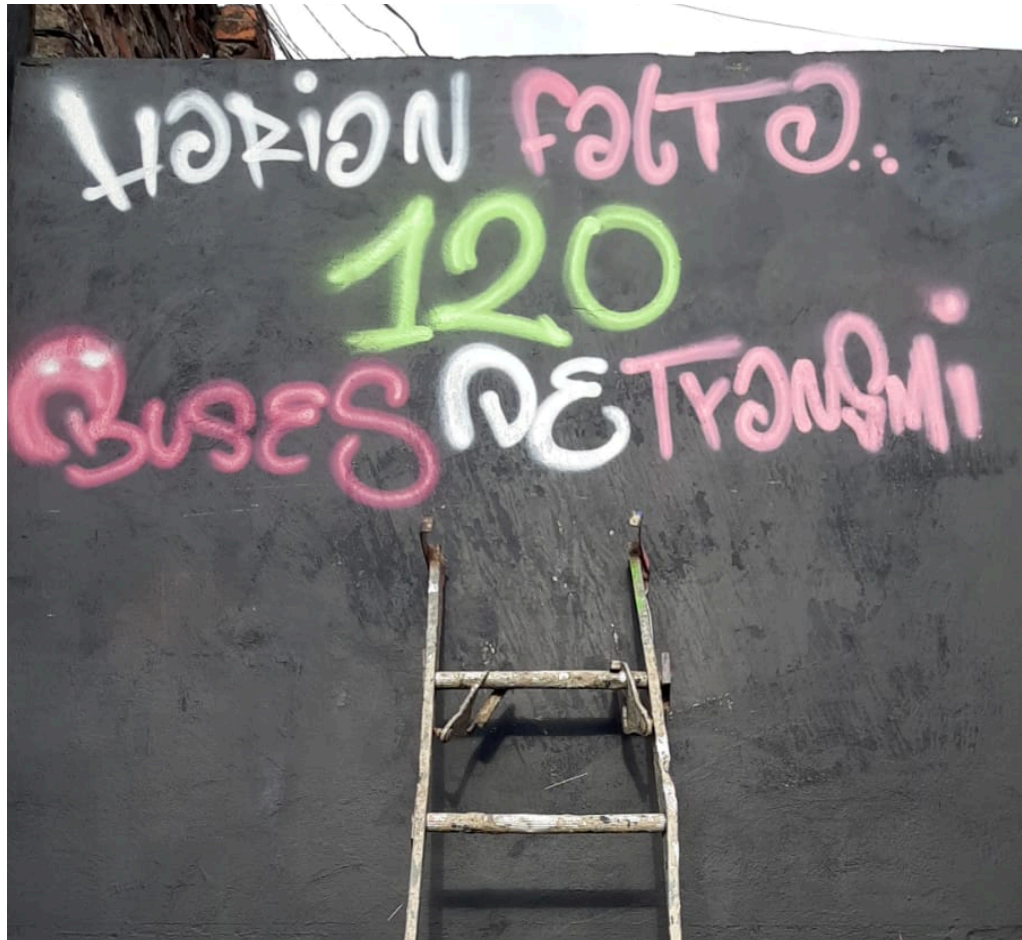 HARiAN FALTA...
120
BUSES DE TrANSMi